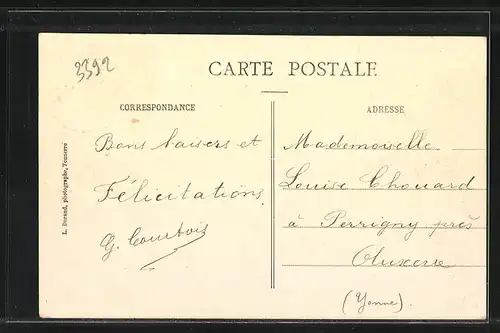 3392
CARTE POSTALE
CORRESPONDANCE
Bons baisers et
Félicitations
G. Courtois
L. Durand, photographe, Tonnerre
ADRESSE
Mademoiselle
Louise Chouard
à Perrigny près
Auxerre
(Yonne).